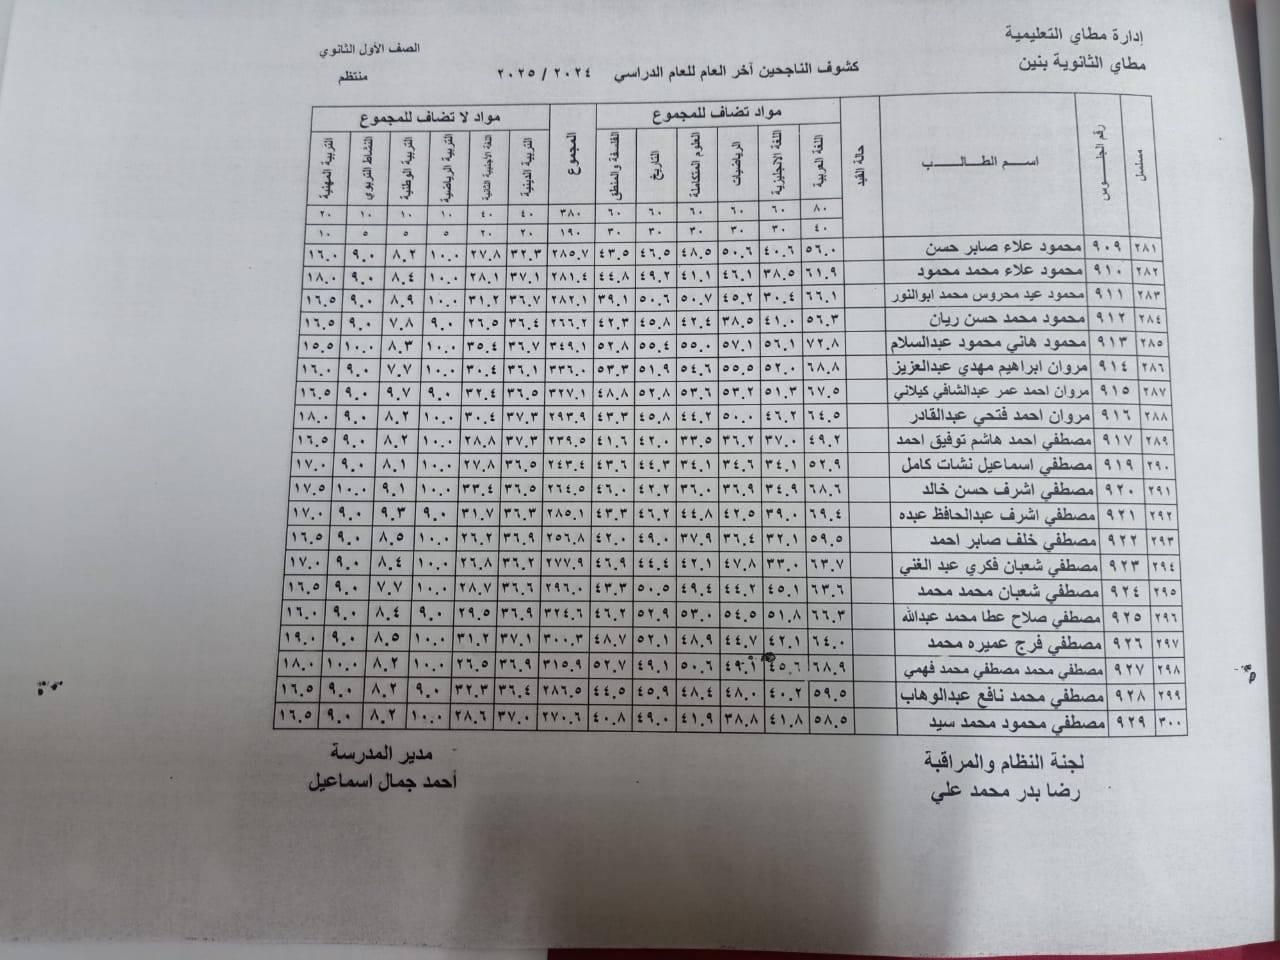 إدارة مطاي التعليمية
مطاي الثانوية بنين
كشوف الناجحين آخر العام للعام الدراسي ٢٠٢٤ / ٢٠٢٥
الصف الأول الثانوي
منتظم
مسلسل رقم الجلوس اسم الطالب حالة القيد مواد تضاف للمجموع المجموع مواد لا تضاف للمجموع
اللغة العربية اللغة الانجليزية الرياضيات العلوم المتكاملة التاريخ الفلسفة والمنطق التربية الدينية اللغة الأجنبية الثانية التربية الرياضية التربية الوطنية النشاط التربوي التربية المهنية
٨٠ ٦٠ ٦٠ ٦٠ ٦٠ ٦٠ ٣٨٠ ٤٠ ٤٠ ١٠ ١٠ ١٠ ٢٠
٤٠ ٣٠ ٣٠ ٣٠ ٣٠ ٣٠ ١٩٠ ٢٠ ٢٠ ٥ ٥ ٥ ١٠
٢٨١ ٩٠٩ محمود علاء صابر حسن ٥٦.٠ ٤٠.٦ ٥٠.٦ ٤٨.٥ ٤٦.٥ ٤٣.٥ ٢٨٥.٧ ٣٢.٣ ٢٧.٨ ١٠.٠ ٨.٢ ٩.٠ ١٦.٠
٢٨٢ ٩١٠ محمود علاء محمد محمود ٦١.٩ ٣٨.٥ ٤٦.١ ٤١.١ ٤٩.٢ ٤٤.٨ ٢٨١.٤ ٣٧.١ ٢٨.١ ١٠.٠ ٨.٤ ٩.٠ ١٨.٠
٢٨٣ ٩١١ محمود عيد محروس محمد ابوالنور ٦٦.١ ٣٠.٤ ٤٥.٢ ٥٠.٧ ٥٠.٦ ٣٩.١ ٢٨٢.١ ٣٦.٧ ٣١.٢ ١٠.٠ ٨.٩ ٩.٠ ١٦.٥
٢٨٤ ٩١٢ محمود محمد حسن ريان ٥٦.٣ ٤١.٠ ٣٨.٥ ٤٢.٤ ٤٥.٨ ٤٢.٣ ٢٦٦.٢ ٣٦.٤ ٢٦.٥ ٩.٠ ٧.٨ ٩.٠ ١٦.٥
٢٨٥ ٩١٣ محمود هاني محمود عبدالسلام ٧٢.٨ ٥٦.١ ٥٧.١ ٥٥.٠ ٥٥.٤ ٥٢.٨ ٣٤٩.١ ٣٦.٧ ٣٥.٤ ١٠.٠ ٨.٣ ١٠.٠ ١٥.٥
٢٨٦ ٩١٤ مروان ابراهيم مهدي عبدالعزيز ٦٨.٨ ٥٢.٠ ٥٥.٥ ٥٤.٦ ٥١.٩ ٥٣.٣ ٣٣٦.٠ ٣٦.١ ٣٠.٤ ١٠.٠ ٧.٧ ٩.٠ ١٦.٠
٢٨٧ ٩١٥ مروان احمد عمر عبدالشافي كيلاني ٦٧.٥ ٥١.٣ ٥٣.٢ ٥٣.٦ ٥٢.٨ ٤٨.٨ ٣٢٧.١ ٣٦.٥ ٣٢.٤ ٩.٠ ٩.٧ ٩.٠ ١٦.٥
٢٨٨ ٩١٦ مروان احمد فتحي عبدالقادر ٦٤.٥ ٤٦.٢ ٥٠.٠ ٤٤.٢ ٤٥.٨ ٤٣.٣ ٢٩٣.٩ ٣٧.٣ ٣٠.٤ ١٠.٠ ٨.٢ ٩.٠ ١٨.٠
٢٨٩ ٩١٧ مصطفي احمد هاشم توفيق احمد ٤٩.٢ ٣٧.٠ ٣٦.٢ ٣٣.٥ ٤٢.٠ ٤١.٦ ٢٣٩.٥ ٣٧.٣ ٢٨.٨ ١٠.٠ ٨.٢ ٩.٠ ١٦.٥
٢٩٠ ٩١٩ مصطفي اسماعيل نشات كامل ٥٢.٩ ٣٤.١ ٣٤.٦ ٣٤.١ ٤٤.٣ ٤٣.٦ ٢٤٣.٤ ٣٦.٥ ٢٧.٨ ١٠.٠ ٨.١ ٩.٠ ١٧.٠
٢٩١ ٩٢٠ مصطفي اشرف حسن خالد ٦٨.٦ ٣٤.٩ ٣٦.٩ ٣٦.٠ ٤٢.٢ ٤٦.٠ ٢٦٤.٥ ٣٦.٥ ٣٣.٤ ١٠.٠ ٩.١ ١٠.٠ ١٧.٥
٢٩٢ ٩٢١ مصطفي اشرف عبدالحافظ عبده ٦٩.٤ ٣٩.٠ ٤٢.٥ ٤٤.٨ ٤٦.٢ ٤٣.٣ ٢٨٥.١ ٣٦.٣ ٣١.٧ ٩.٠ ٩.٣ ٩.٠ ١٧.٠
٢٩٣ ٩٢٢ مصطفي خلف صابر احمد ٥٩.٥ ٣٢.١ ٣٦.٤ ٣٧.٩ ٤٩.٠ ٤٢.٠ ٢٥٦.٨ ٣٦.٩ ٢٦.٢ ١٠.٠ ٨.٥ ٩.٠ ١٦.٥
٢٩٤ ٩٢٣ مصطفي شعبان فكري عبد الغني ٦٣.٧ ٣٣.٠ ٤٧.٨ ٤٢.١ ٤٤.٤ ٤٦.٩ ٢٧٧.٩ ٣٦.٢ ٢٦.٨ ١٠.٠ ٨.٤ ٩.٠ ١٧.٠
٢٩٥ ٩٢٤ مصطفي شعبان محمد محمد ٦٣.٦ ٤٥.١ ٤٤.٢ ٤٩.٤ ٥٠.٥ ٤٣.٣ ٢٩٦.٠ ٣٦.٦ ٢٨.٧ ١٠.٠ ٧.٧ ٩.٠ ١٦.٥
٢٩٦ ٩٢٥ مصطفي صلاح عطا محمد عبدالله ٦٦.٣ ٥١.٨ ٥٤.٥ ٥٣.٠ ٥٢.٩ ٤٦.٢ ٣٢٤.٦ ٣٦.٩ ٢٩.٥ ٩.٠ ٨.٤ ٩.٠ ١٦.٠
٢٩٧ ٩٢٦ مصطفي فرج عميره محمد ٦٤.٠ ٤٢.١ ٤٤.٧ ٤٨.٩ ٥٢.١ ٤٨.٧ ٣٠٠.٣ ٣٧.١ ٣١.٢ ١٠.٠ ٨.٥ ٩.٠ ١٩.٠
٢٩٨ ٩٢٧ مصطفي محمد مصطفي محمد فهمي ٦٨.٩ ٤٥.٦ ٤٩.١ ٥٠.٦ ٤٩.١ ٥٢.٧ ٣١٥.٩ ٣٦.٩ ٢٦.٥ ١٠.٠ ٨.٢ ١٠.٠ ١٨.٠
٢٩٩ ٩٢٨ مصطفي محمد نافع عبدالوهاب ٥٩.٥ ٤٠.٢ ٤٨.٠ ٤٨.٤ ٤٥.٩ ٤٤.٥ ٢٨٦.٥ ٣٦.٤ ٣٢.٣ ٩.٠ ٨.٢ ٩.٠ ١٦.٥
٣٠٠ ٩٢٩ مصطفي محمود محمد سيد ٥٨.٥ ٤١.٨ ٣٨.٨ ٤١.٩ ٤٩.٠ ٤٠.٨ ٢٧٠.٦ ٣٧.٠ ٢٨.٦ ١٠.٠ ٨.٢ ٩.٠ ١٦.٥
لجنة النظام والمراقبة
رضا بدر محمد علي
مدير المدرسة
أحمد جمال اسماعيل